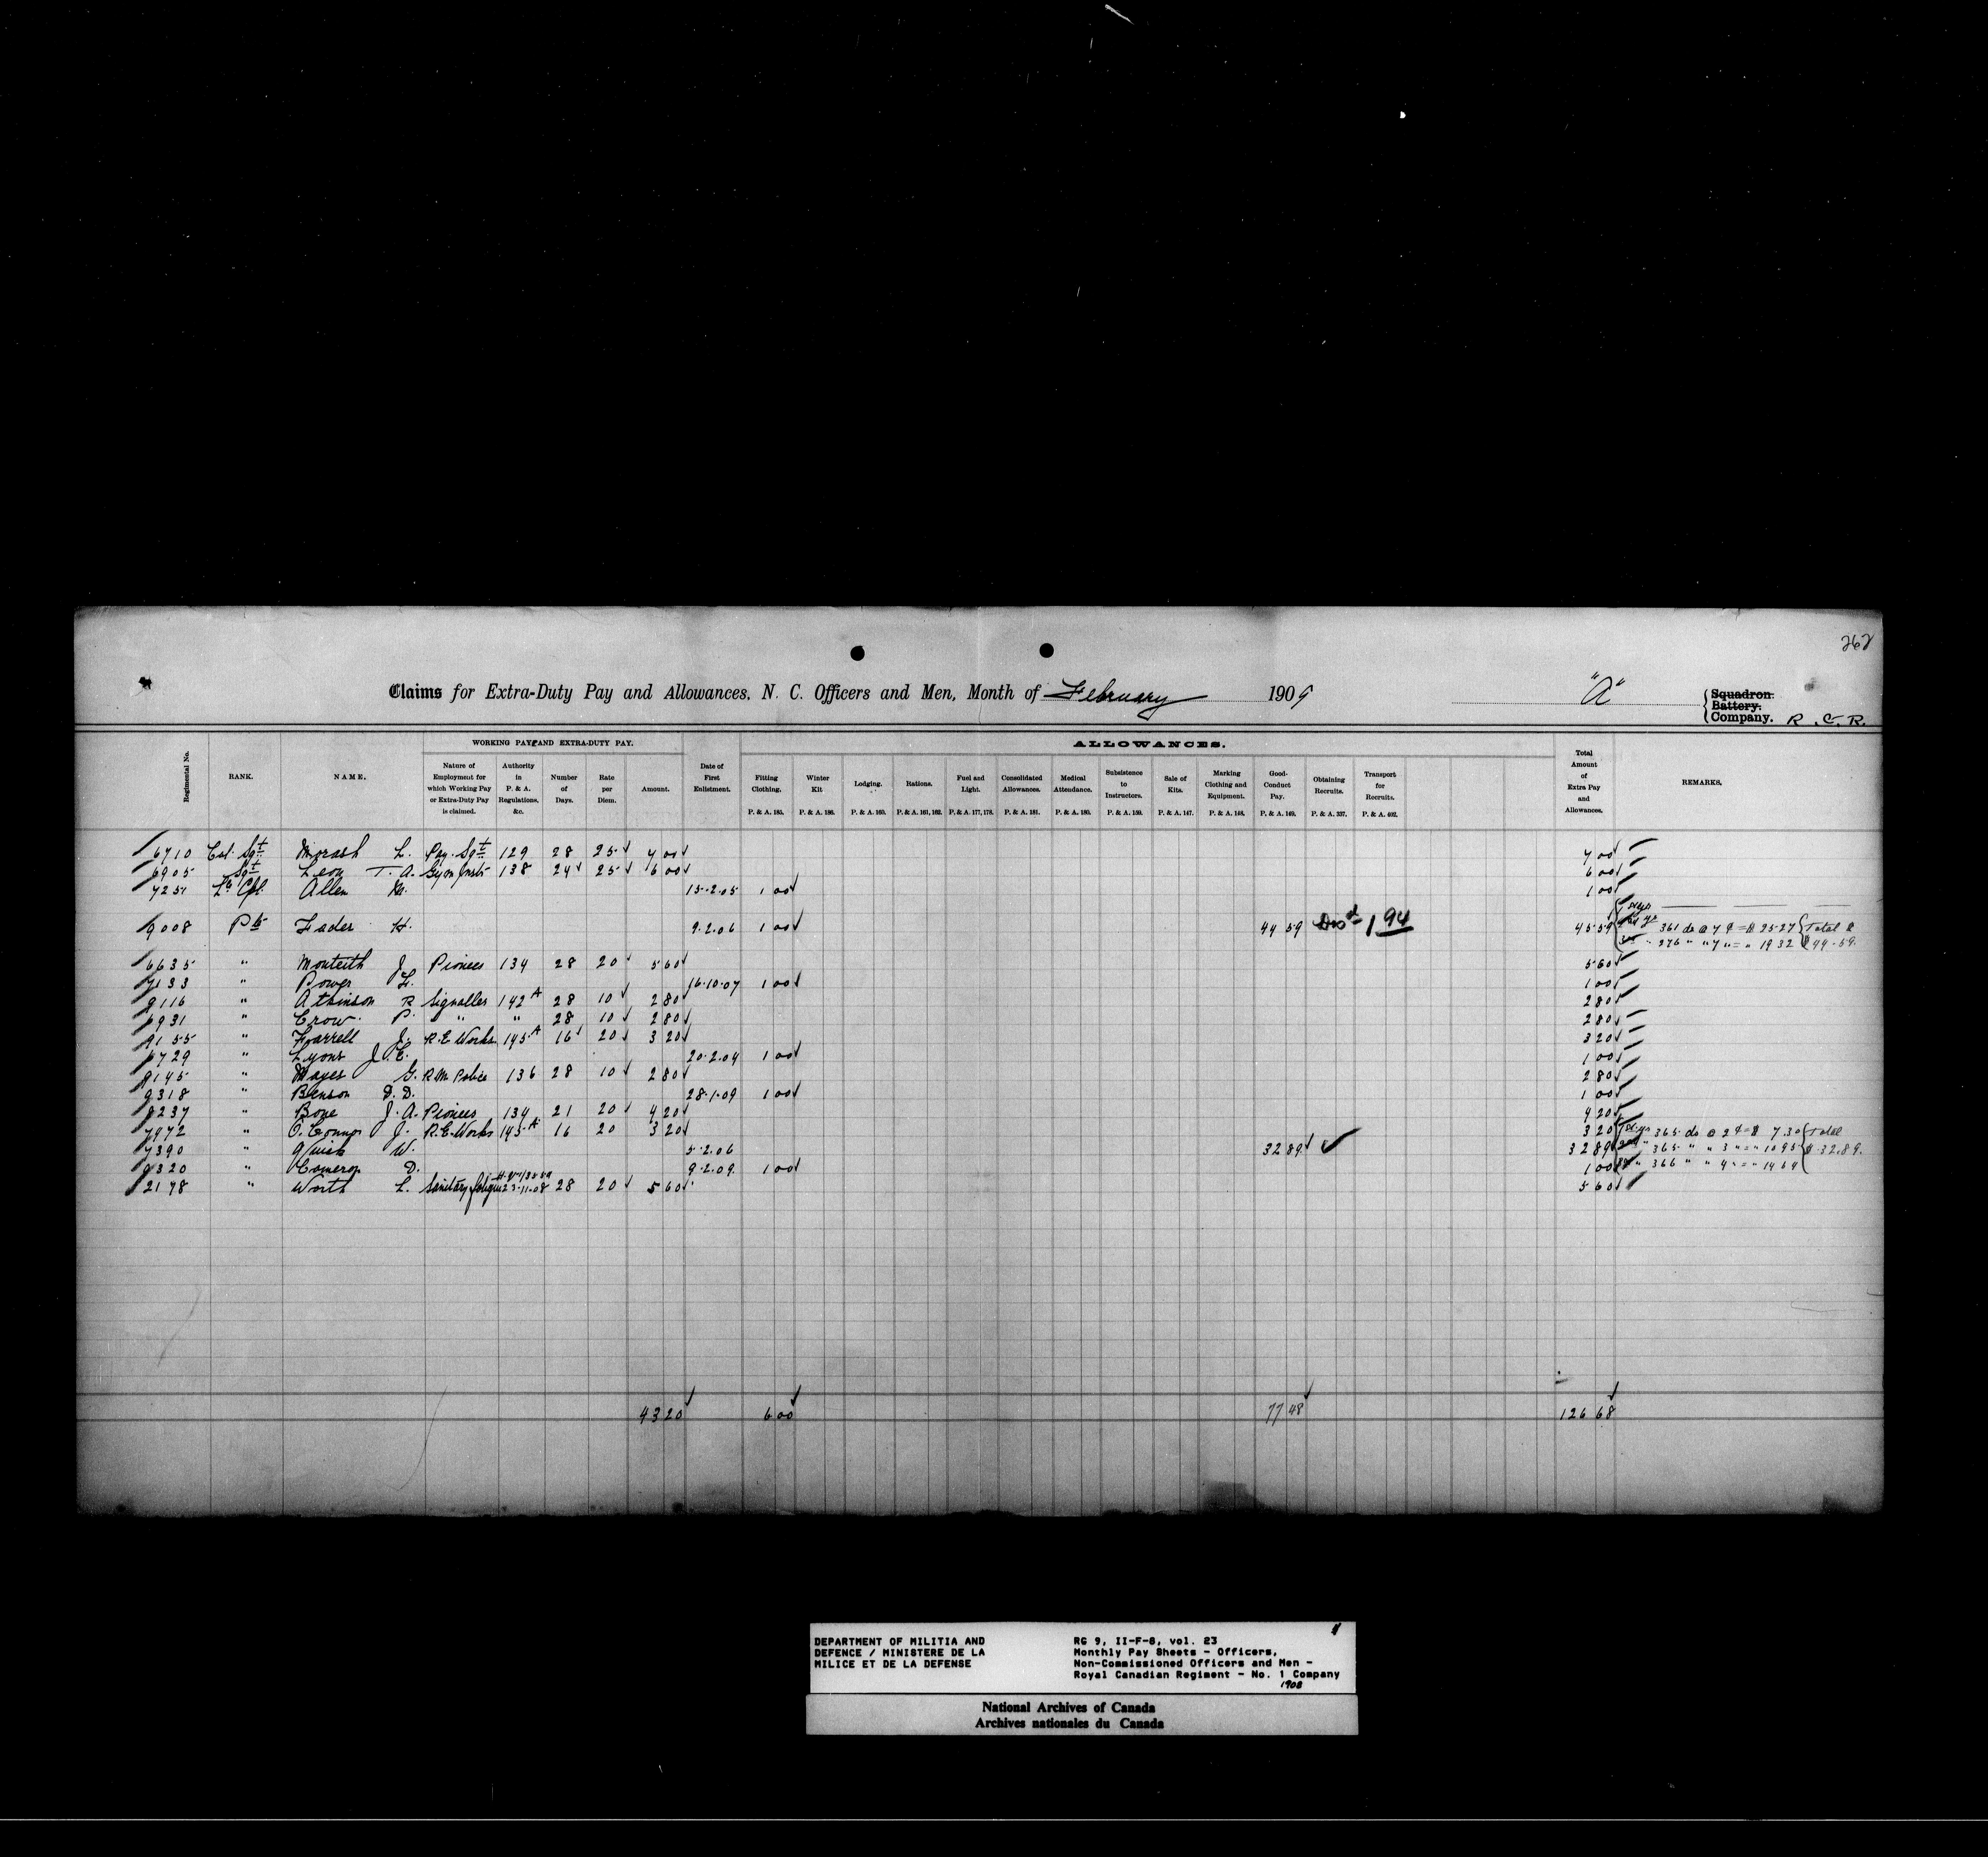 262
Claims for Extra-Duty Pay and Allowances, N. C. Officers and Men, Month of February 1909 "A" Squadron. Battery. Company. R.C.R.
WORKING PAY AND EXTRA-DUTY PAY. ALLOWANCES.
Regimental No. RANK. NAME. Nature of Employment for which Working Pay or Extra-Duty Pay is claimed. Authority in P. & A. Regulations, &c. Number of Days. Rate per Diem. Amount. Date of First Enlistment. Fitting Clothing. P. & A. 185. Winter Kit P. & A. 186. Lodging. P. & A. 160. Rations. P. & A. 161, 162. Fuel and Light. P. & A. 177, 178. Consolidated Allowances. P. & A. 181. Medical Attendance. P. & A. 180. Subsistence to Instructors. P. & A. 150. Sale of Kits. P. & A. 147. Marking Clothing and Equipment. P. & A. 148. Good-Conduct Pay. P. & A. 149. Obtaining Recruits. P. & A. 337. Transport for Recruits. P. & A. 402. Total Amount of Extra Pay and Allowances. REMARKS.
6710 Col. Sgt Morash L. Pay. Sgt 129 28 25 7 00 7 00
6905 Sgt Leon T. A. Gym Instr 138 24 25 6 00 6 00
7251 Lc Cpl. Allen M. 15.2.05 1 00 1 00
9008 Pte Fader H. 9.2.06 1 00 44 59 1 94 45 59 361 do @ 7 ¢ = $ 25.27 Total $
276 " " 7 " = " 19 32 44.59.
6635 " Monteith J. Pioneer 134 28 20 5 60 5 60
7133 " Power F. 16.10.07 1 00 1 00
9116 " Atkinson R Signaller 142 A 28 10 2 80 2 80
6931 " Crow P. " " 28 10 2 80 2 80
9155 " Farrell J. R.E. Works 145 A 16 20 3 20 3 20
6729 " Lyons J. C. 20.2.04 1 00 1 00
9145 " Mayes G. R.M. Police 136 28 10 2 80 2 80
9318 " Benson D. D. 28.1.09 1 00 1 00
8237 " Boze J. A. Pioneer 134 21 20 4 20 4 20
7972 " O'Connor J. R.E. Works 145 A 16 20 3 20 3 20 1st yr 365 do @ 2 ¢ = $ 7.30 Total
7390 " Quick W. 5.2.06 32 89 32 89 2nd " 365 " " 3 " = " 10 95 $ 32.89.
9320 " Cameron D. 9.2.09. 1 00 1 00 " 366 " " 4 " = " 14 64
2178 " Worth L. Sanitary fatigue 23.11.08 28 20 5 60 5 60
43 20 6 00 77 48 126 68
DEPARTMENT OF MILITIA AND
DEFENCE / MINISTERE DE LA
MILICE ET DE LA DEFENSE
RG 9, II-F-8, vol. 23
Monthly Pay Sheets - Officers,
Non-Commissioned Officers and Men -
Royal Canadian Regiment - No. 1 Company
1908
National Archives of Canada
Archives nationales du Canada